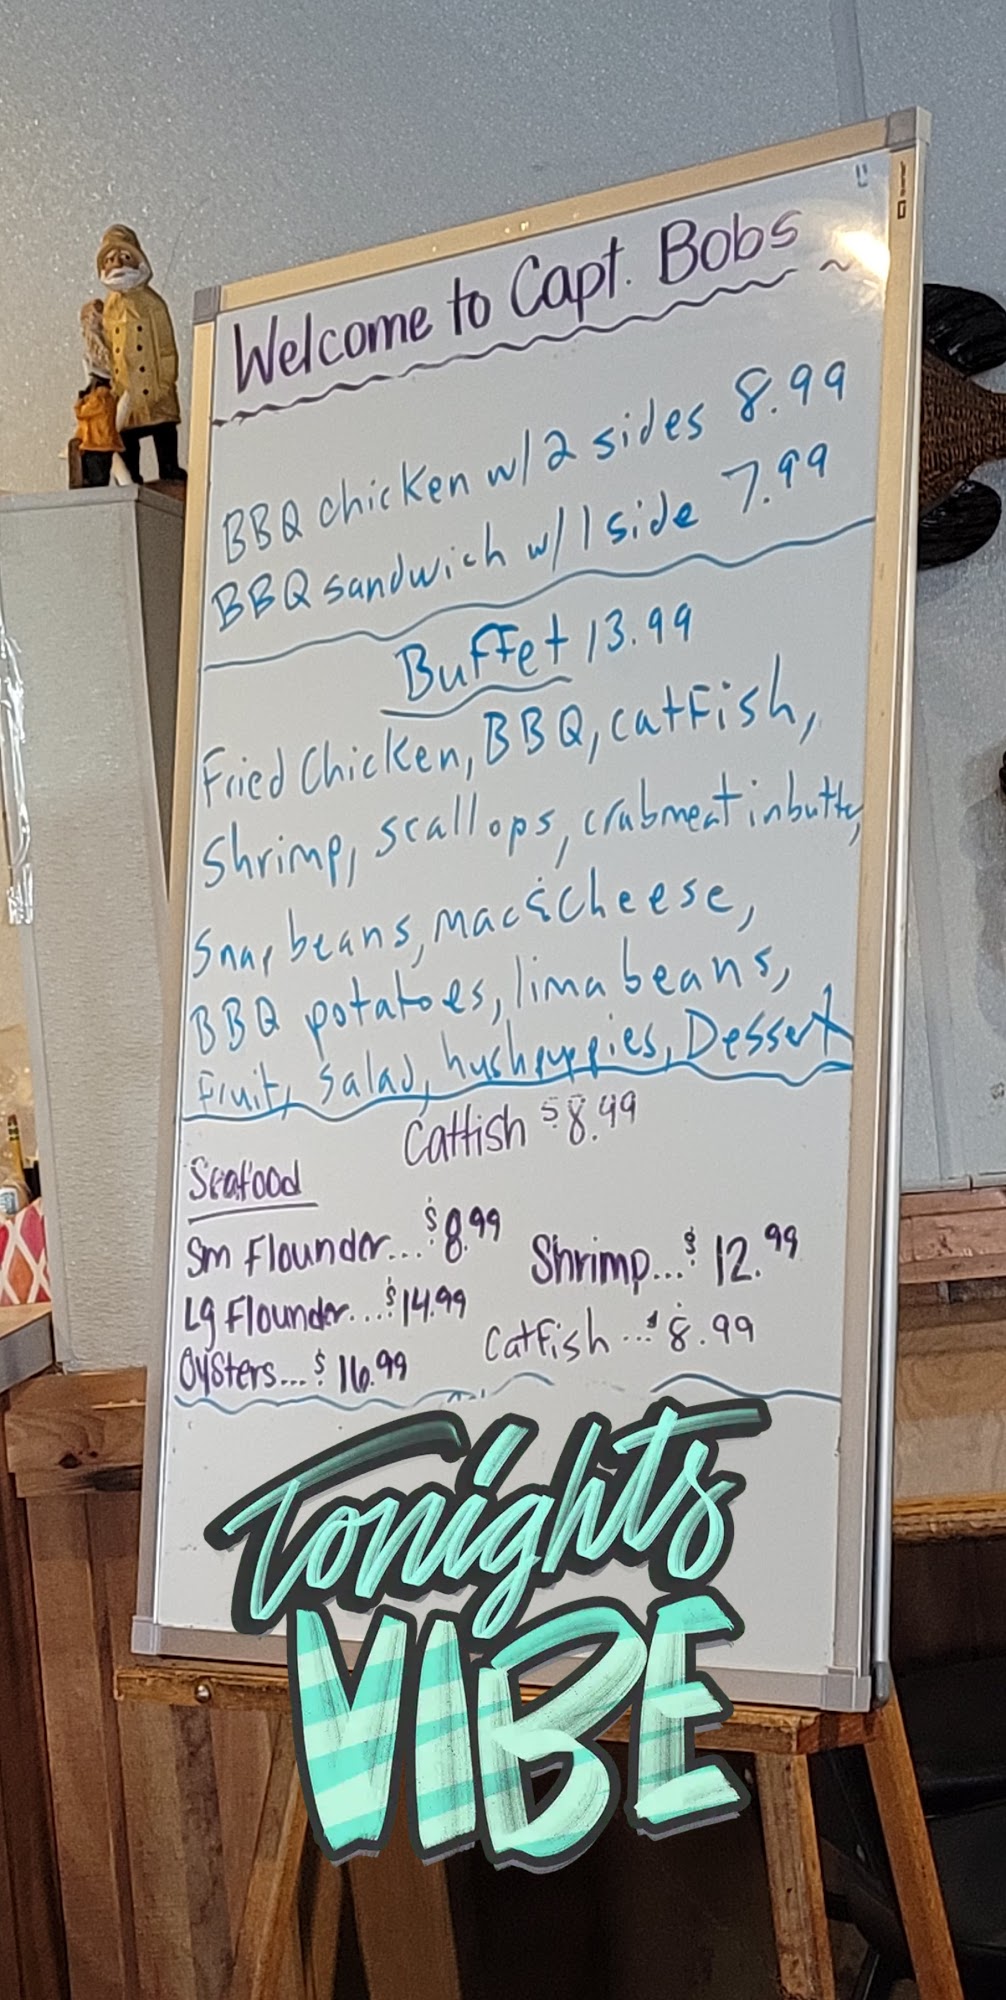 Welcome to Capt. Bobs
BBQ chicken w/2 sides 8.99
BBQ sandwich w/1 side 7.99
Buffet 13.99
Fried Chicken, BBQ, catfish,
Shrimp, scallops, crabmeat in butter,
Snap beans, mac & cheese,
BBQ potatoes, lima beans,
Fruit, salad, hushpuppies, Dessert
Catfish $8.49
Seafood
Sm Flounder...$8.99
Shrimp...$12.99
Lg Flounder...$14.99
Catfish...$8.99
Oysters...$16.99
Tonights
VIBE